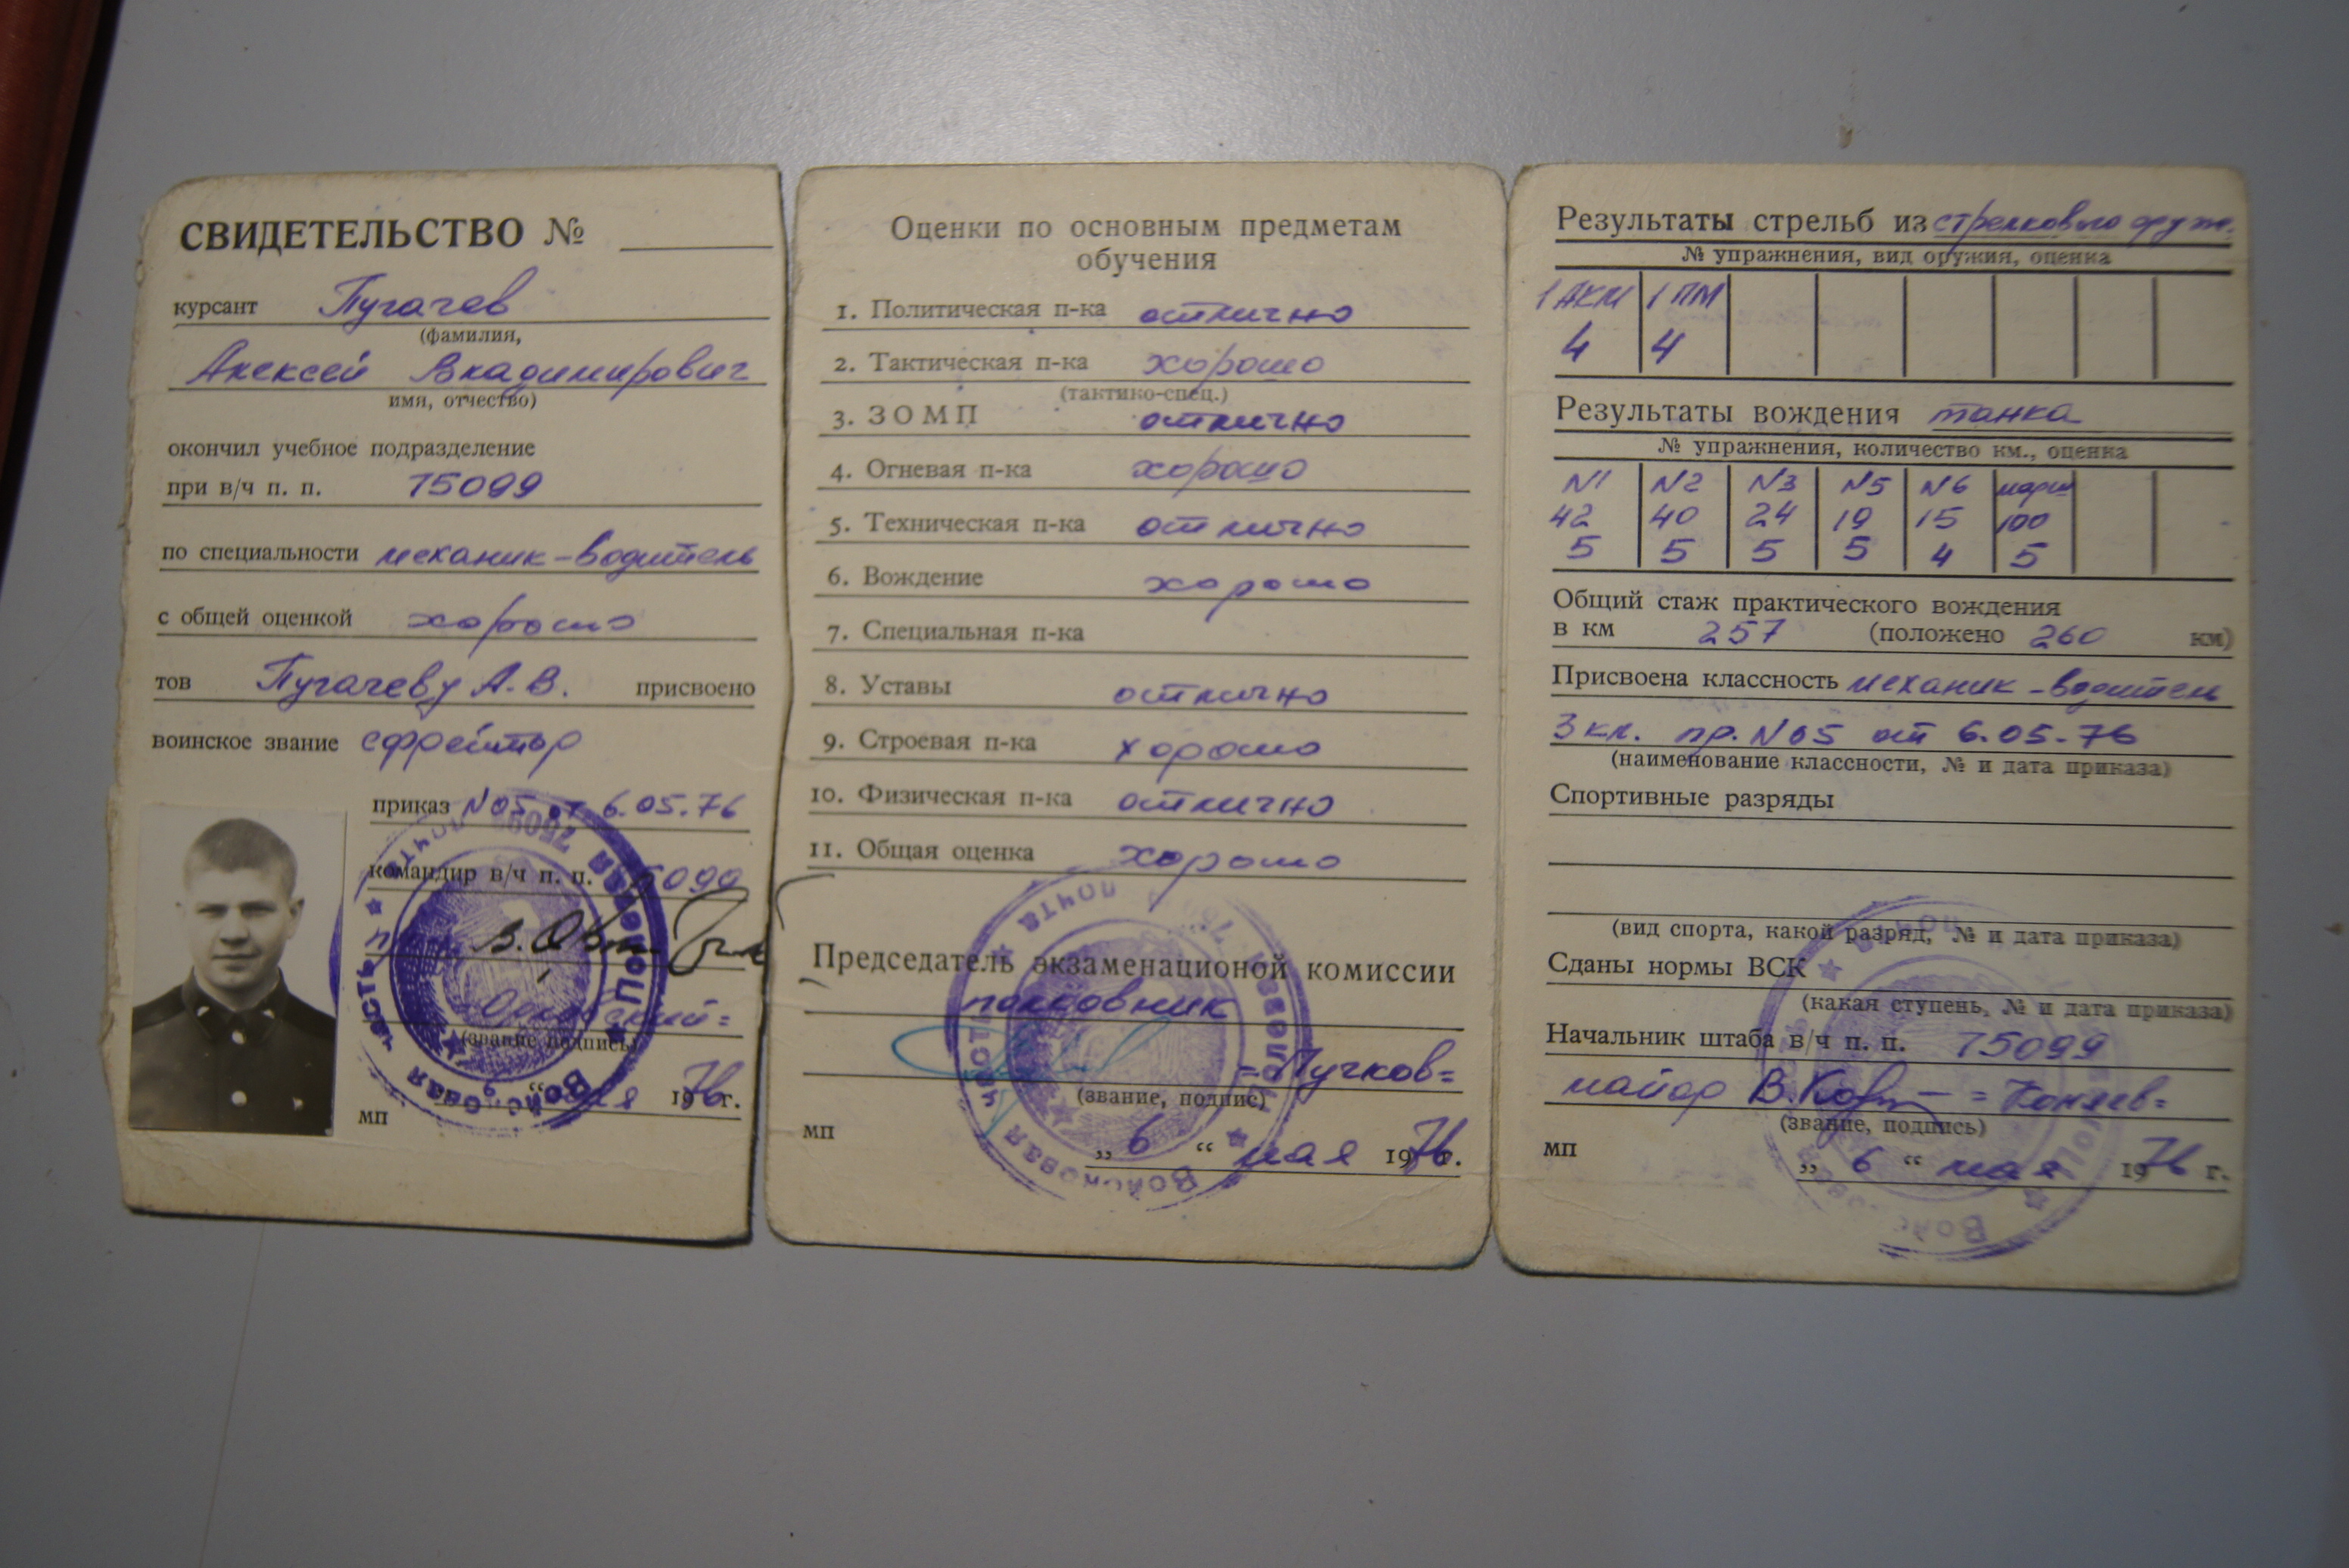 СВИДЕТЕЛЬСТВО №
курсант Пугачев
(фамилия,
Алексей Владимирович
имя, отчество)
окончил учебное подразделение
при в/ч п. п. 75099
по специальности механик-водитель
с общей оценкой хорошо
тов Пугачеву А.В. присвоено
воинское звание ефрейтор
приказ №05 от 6.05.76
командир в/ч п. п. 75099
(звание подпись)
" 6 " мая 1976 г.
мп
Войсковая часть Полевая почта 75099
Оценки по основным предметам
обучения
1. Политическая п-ка отлично
2. Тактическая п-ка хорошо
(тактико-спец.)
3. ЗОМП отлично
4. Огневая п-ка хорошо
5. Техническая п-ка отлично
6. Вождение хорошо
7. Специальная п-ка
8. Уставы отлично
9. Строевая п-ка хорошо
10. Физическая п-ка отлично
11. Общая оценка хорошо
Председатель экзаменационой комиссии
полковник
=Пучков=
(звание, подпис)
мп
„ 6 “ мая 1976 г.
Войсковая часть Полевая почта
Результаты стрельб из стрелкового оруж.
№ упражнения, вид оружия, оценка
1 АКМ 1 ПМ
4 4
Результаты вождения танка
№ упражнения, количество км., оценка
N1 N2 N3 N5 N6 марш
42 40 24 19 15 100
5 5 5 5 4 5
Общий стаж практического вождения
в км 257 (положено 260 км)
Присвоена классность механик-водитель
3 кл. пр. N05 от 6.05-76
(наименование классности, № и дата приказа)
Спортивные разряды
(вид спорта, какой разряд, № и дата приказа)
Сданы нормы ВСК
(какая ступень, № и дата приказа)
Начальник штаба в/ч п. п. 75099
майор
(звание, подпись)
мп
„ 6 “ мая 1976 г.